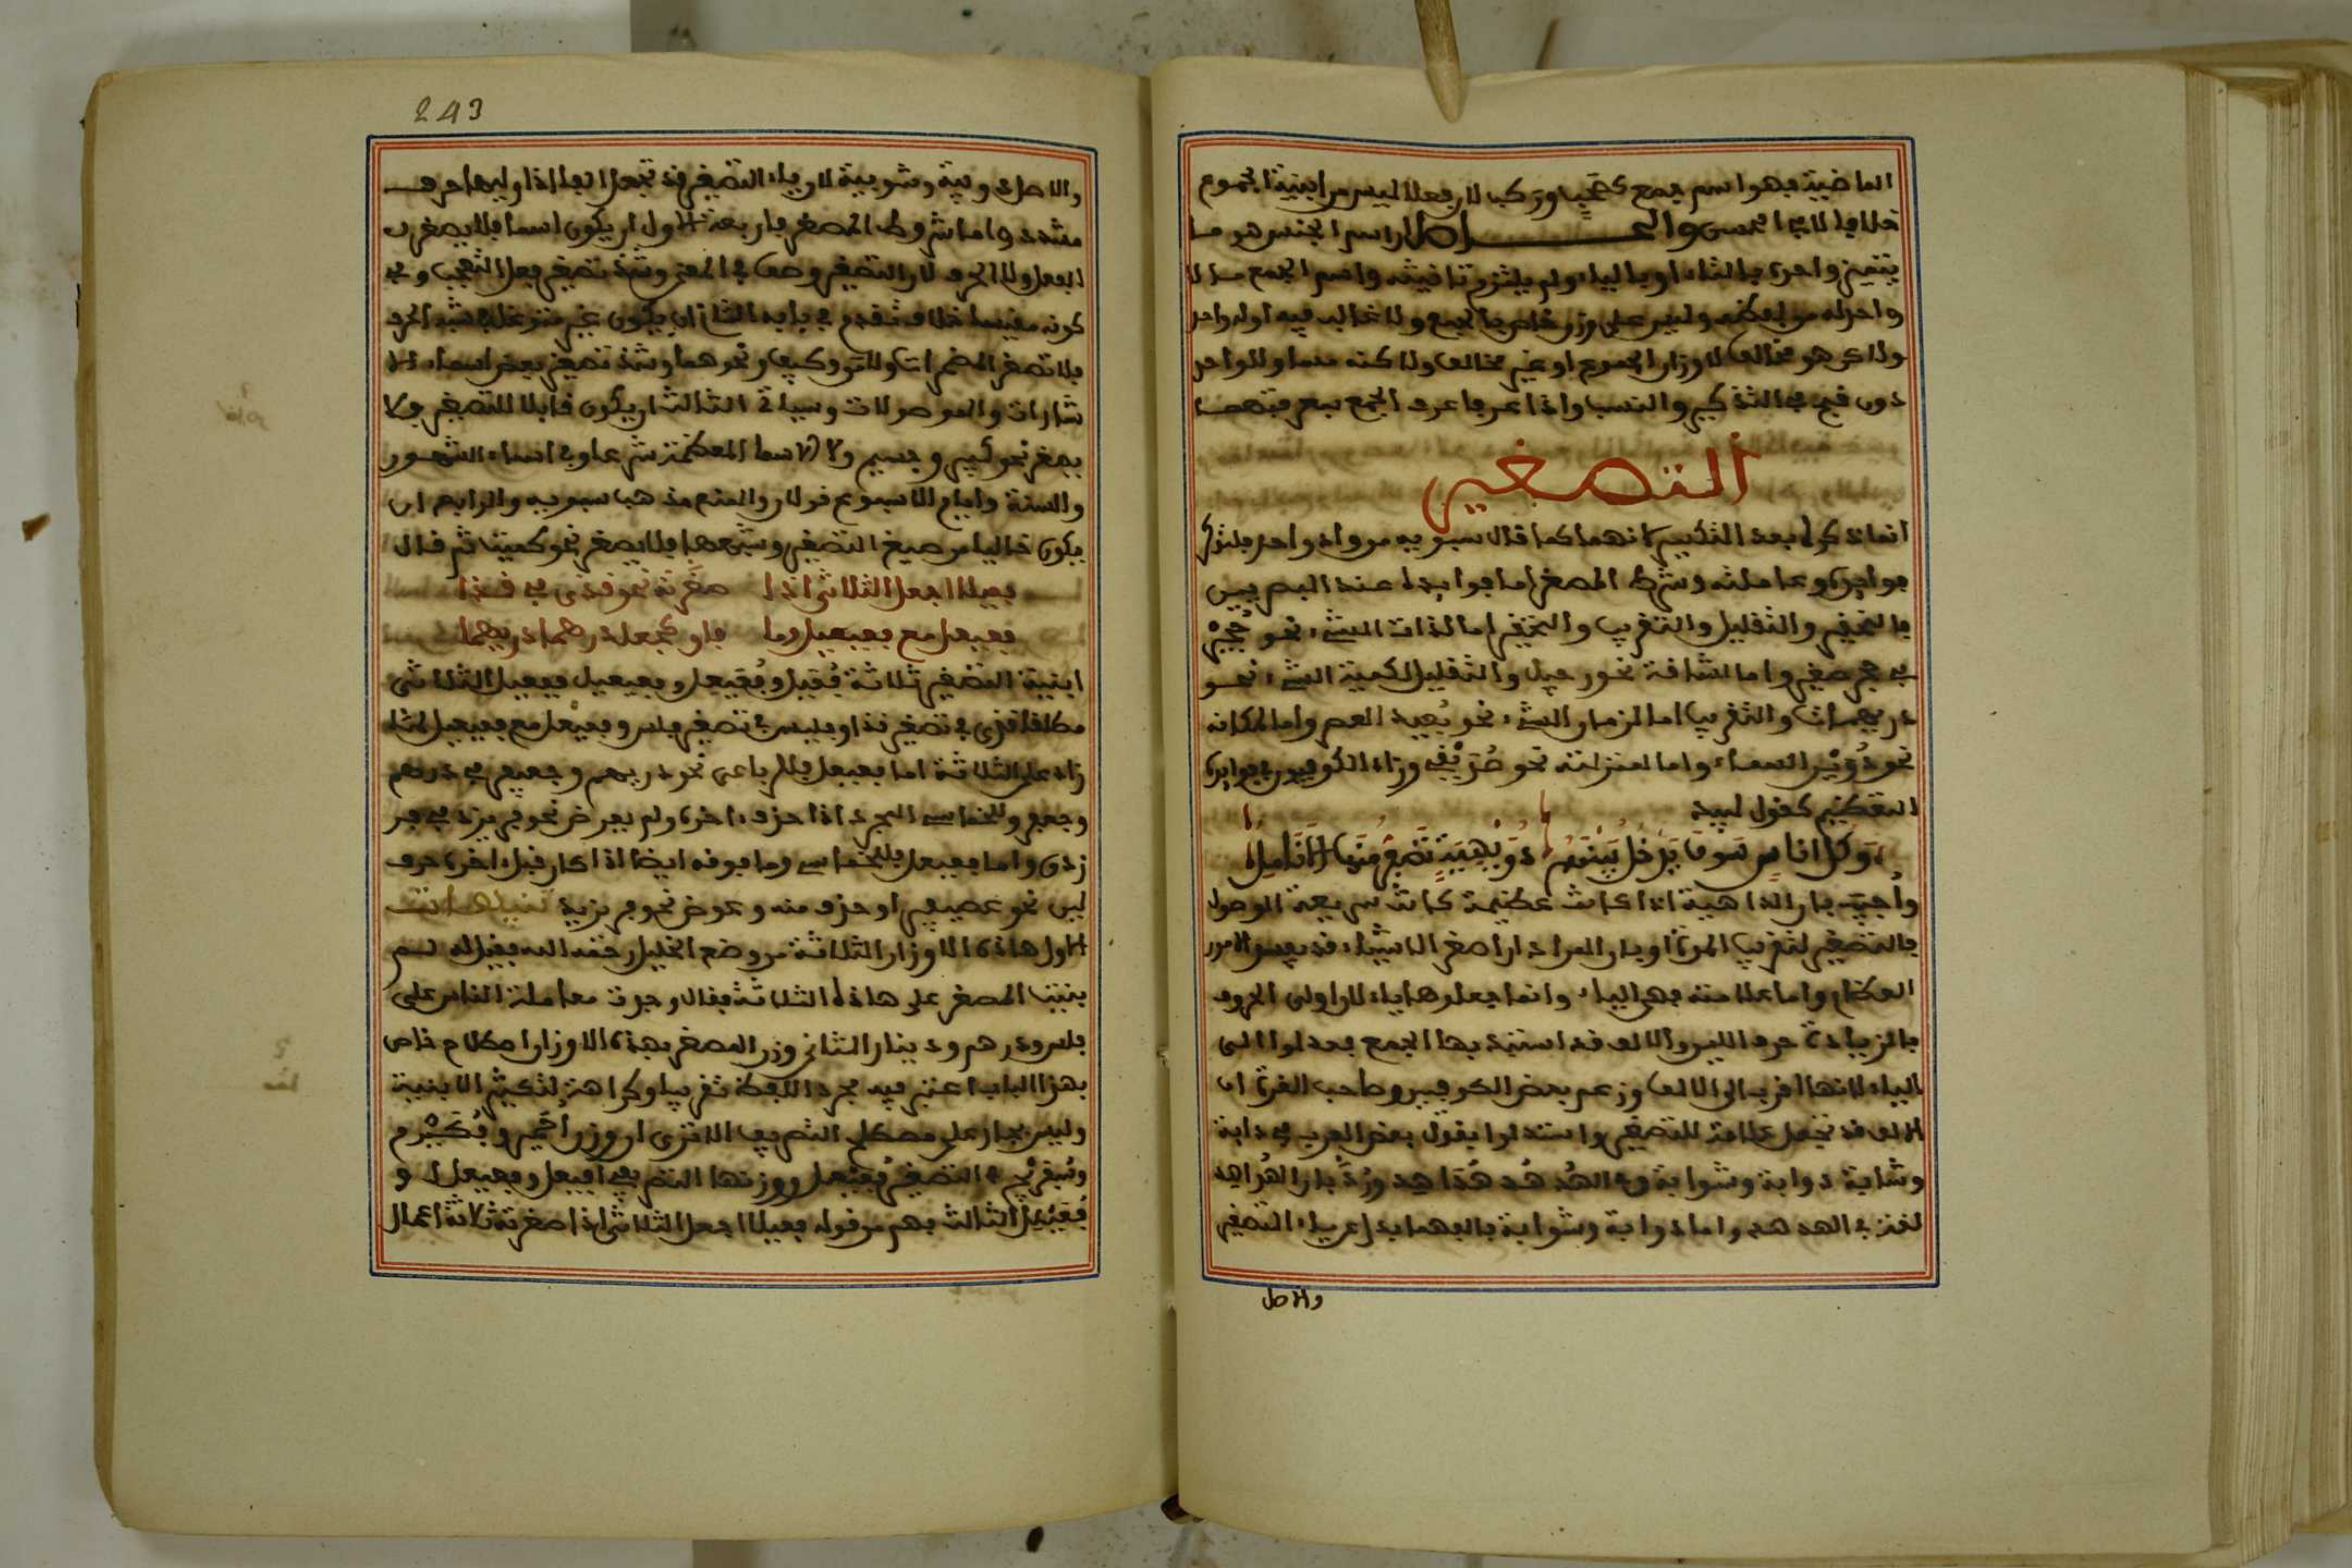 الماضية فهو اسم جمع كصحب وركب لان فعلا ليس من ابنية الجموع
خلافا لابي الحسن والحـــاصل ان اسم الجنس هو ما
يتميز واحده بالتاء او بالياء ولم يلتزم تانيثه واسم الجمع ما لا
واحد له من لفظه وليس على وزن خاص بالجمع ولا غالب فيه اوله واحد
ولاكن هو مخالف لاوزان الجموع او غير مخالف ولاكنه مساو للواحد
دون قبح في التذكير والنسب واذا عرف ما عرف الجمع
التصغير
انما ذكره بعد التكسير لانهما كما قال سيبويه من واد واحد
فوائده وعلامته وشرط المصغر اما فوائده عند البصريين
فالتحقير والتقليل والتقريب والتحقير اما لذات الشيء نحو حُجَيْر
في حجر صغير واما لشانه نحو رجيل والتقليل لكمية الشيء نحو
دريهمات والتقريب اما لزمان الشيء نحو بُعيد العصر واما لمكانه
نحو دُوَيْن السماء واما لمنزلته نحو صُدَيْقي وزاد الكوفيون في فوائده
التعظيم كقول لبيد
وَكل اناس سَوف يَدخُل بَيْنَهُم دُوَيْهِيَةٌ تَصْفَرُّ مِنْهَا الاَنَامِلُ
وأجيب بان الداهية اذا كانت عظيمة كانت سريعة الوصول
فالتصغير لتقريب المدة او بان المراد ان اصغر الاشياء قد يفسد الامور
العظام واما علامته فهي الياء وانما جعلوها ياء لان اولى الحروف
بالزيادة حرف اللين والالف قد استبد بها الجمع فعدلوا الى
الياء لانها اقرب الى الالف وزعم بعض الكوفيين وصاحب الغرة ان
الالف قد تجعل علامة للتصغير واستدلوا بقول بعض العرب في دابة
وشابة دوابة وشوابة وفي الهُدهُد هُدَاهِد ورُدَّ بان الهُداهد
لغة في الهدهد واما دوابة وشوابة فالفهما بدل عن ياء التصغير
والاصل
243
والاصل دويبة وشويبة لان ياء التصغير قد تجعل الفا اذا وليها حرف
مشدد واما شروط المصغر فاربعة الاول ان يكون اسما فلا يصغر
الفعل ولا الحرف لان التصغير وصف في المعنى وشذ تصغير فعل التعجب وفي
كونه مقيسا خلاف تقدم في بابه الثاني ان يكون غير متوغل في شبه الحرف
فلا تصغر المضمرات ولا من وكيف ونحوهما وشذ تصغير بعض اسماء الا
شارات والموصولات وسياتي الثالث ان يكون قابلا للتصغير فلا
يصغر نحو كبير وجسيم ولا الاسماء المعظمة شرعا وفي اسماء الشهور
والسنة وايام الاسبوع قولان والمنع مذهب سيبويه والرابع ان
يكون خاليا من صيغ التصغير وشبهها فلا يصغر نحو كميت ثم قال
فعيلا اجعل الثلاثي اذا صغرته نحو قذي في قذا
فعيعل مع فعيعيل لما فاق كجعل درهم دريهما
ابنية التصغير ثلاثة فُعَيل وفُعَيعل وفعيعيل ففعيل للثلاثي
مطلقا قذي في تصغير قذا وفليس في تصغير فلس وفعيعل مع فعيعيل لما
زاد على الثلاثة اما فعيعل فللرباعي نحو دريهم وجعيفر في درهم
وجعفر وللخماسي المجرد اذا حذف اخره ولم يعوض نحو فريزد في فر
زدق واما فعيعيل فللخماسي وما فوقه ايضا اذا كان قبل اخره حرف
لين نحو عصيفير او حذف منه وعوض نحو فريزيد تنبيهات
الاول هاذه الاوزان الثلاثة من وضع الخليل رحمه الله فقيل له لم
بنيت المصغر على هاذه الثلاثة فقال وجدت معاملة الناس على
فلس ودرهم ودينار الثاني وزن المصغر بهذه الاوزان اصطلاح خاص
بهذا الباب اعتبر فيه مجرد اللفظ تقريبا وكراهة لتكثير الابنية
وليس بجار على مصطلح التصريف الا ترى ان وزن أُحَيْمر ومُكَيْرم
وسُفيرج في التصغير فُعَيْعل ووزنها التصريفي أفيعل ومفيعل و
فُعَيْلل الثالث فهم من قوله فعيلا اجعل الثلاثي اذا صغرته ثلاثة اعمال